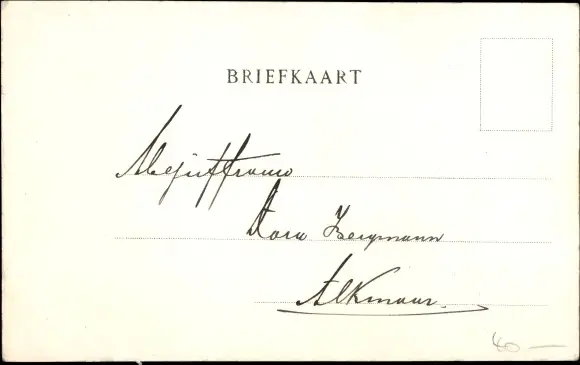 BRIEFKAART
Mejuffrouw
Dora Bergmann
Alkmaar.
40 —